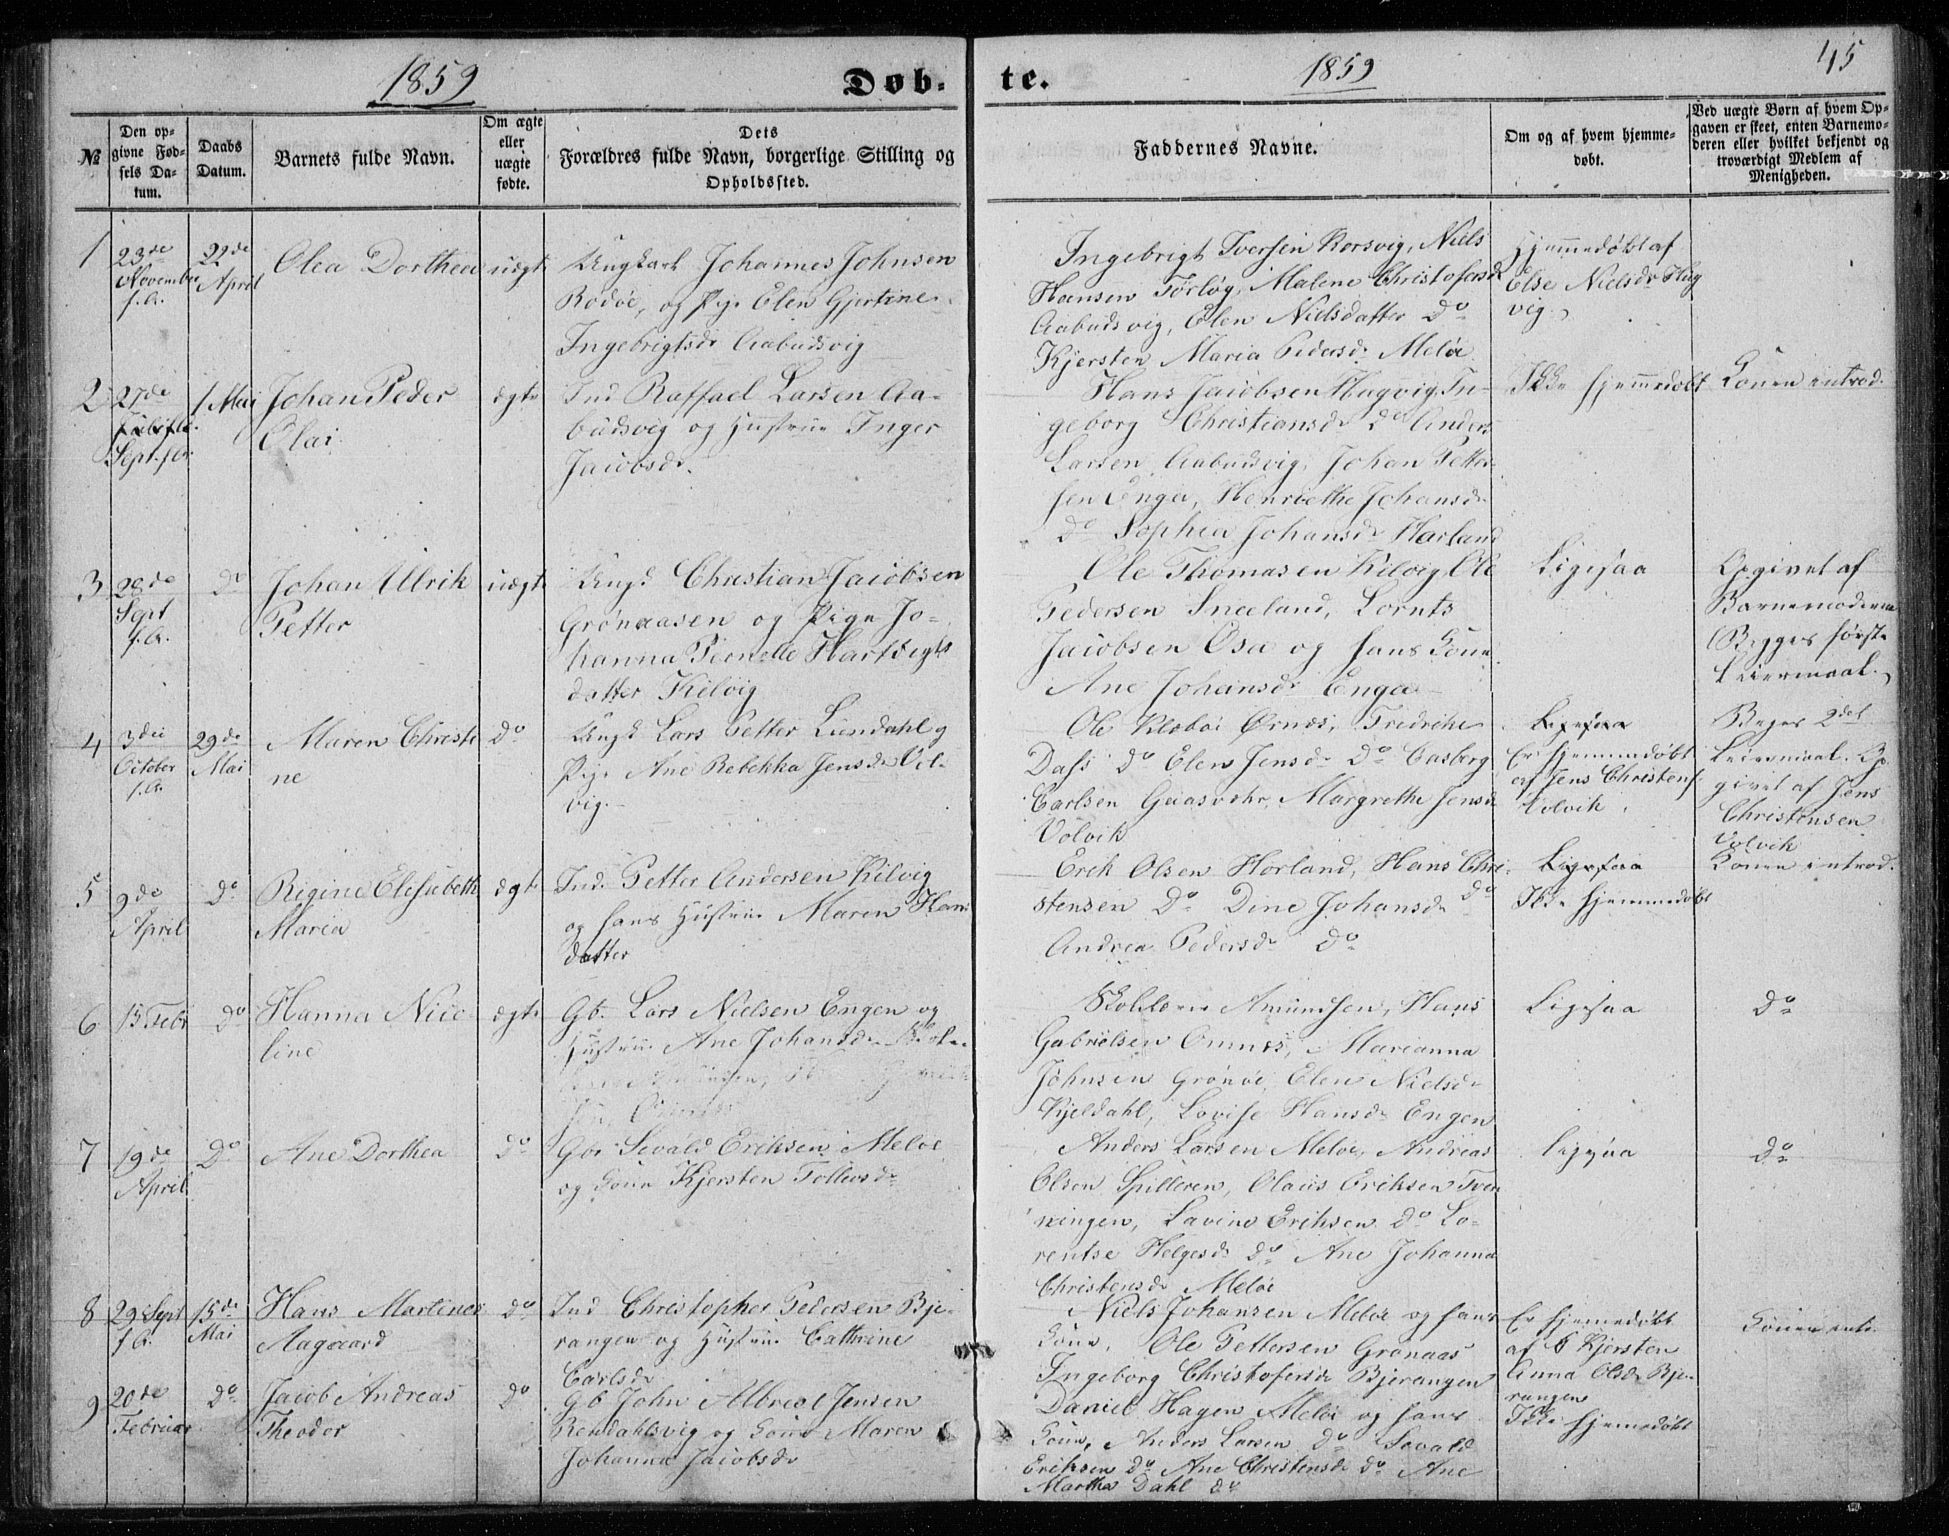 1859
Døb-
te.
1859
45
№
Den op-
givne Fød-
sels Da-
tum.
Daabs
Datum.
Barnets fulde Navn.
Om ægte
eller
uægte
fødte.
Dets
Forældres fulde Navn, borgerlige Stilling og
Opholdssted.
Faddernes Navne.
Om og af hvem hjemme-
døbt.
Ved uægte Børn af hvem Op-
gaven er skeet, enten Barnemo-
deren eller hvilket bekjendt og
troværdigt Medlem af
Menigheden.
1
23de
November
f.A.
22de
April
Olea Dorthea
uægt
Ungkarl Johannes Johnsen
Rodøe, og Pige Elen Gjertine
Ingebrigtsdr Aabudsvig
Ingebrigt Iversen Korsvig, Niels
Hansen Tørløg, Malene Christofersd
Aabudsvig, Elen Nielsdatter do
Kjersten Maria Pedersdr Meløe
Hjemmedøbt af
Else Nielsdr Hug
vig
2
27de
Sept. f.A.
1 Mai
Johan Peder
Olai
ægte
Ind Raffael Larsen Aa-
budsvig og Hustrue Inger
Jacobsdr.
Hans Jacobsen Hugvig, In-
geborg Christiansdr do Anders
Larsen Aabudsvig, Johan Petter-
sen Enga, Henriethe Johansdr
do Sophia Johansdr Harland
Ikke hjemmedøbt
Konen introd.
3
28de
Sept
f.A.
do
Johan Ulrik
Petter
uægt
Ungk Christian Jacobsen
Grønaasen og Pige Jo-
hanna Pernelle Hartvigts
datter Kilvig
Ole Thomasen Kilvig, Ole
Pedersen Sneeland, Lornts
Jacobsen Osa og hans Kone
Ane Johansdr Enga
Ligesaa
Opgivet af
Barnemoderen
Begges første
Leiermaal.
4
3die
October
f.A.
29de
Mai
Maren Christi
ne
do
Ungk Lars Petter Lundahl og
Pige Ane Rebekka Jensdr Vol-
vig.
Ole Klæboe Ørnæs, Fredrikke
Dass do Elen Jensdr do Casberg
Carlsen Gaasvær, Margrethe Jensdr
Volvik
Ligesaa
Er hjemmedøbt
af Jens Christens.
Volvik
Beges 2det
Leiermaal. Op
givet af Jens
Christensen
Volvik
5
9de
April
do
Regine Elisabeth
Maria
ægte
Ind. Petter Andersen Kilvig
og hans Hustrue Maren Hans
datter
Erek Olsen Horland, Hans Chri-
stensen do Dine Johansdr do
Andrea Pedersdr do
Ligesaa
Ikke hjemmedøbt
Konen introd.
6
13 Febr
do
Hanna Nico
line
ægte
Gb. Lars Nielsen Engen og
Hustrue Ane Johansdr
Amundsen, Hans
Gabrielsen Ornæs, Marianna
Johnsen Grønøe, Elen Nielsdr
Kjeldahl, Lovise Hansdr Engen
Ligesaa
do
7
19de
April
do
Ane Dorthea
do
Gbr Sevald Eriksen Meløe
og Kone Kjersten Tollevsdr
Anders Larsen Meløe, Andreas
Olsen Spilderen, Olaus Eriksen Tven
ningen, Lavine Eriksen do Lo-
rentse Helgesdr do Ane Johanna
Christensdr Meløe
Ligesaa
do
8
29 Sept
f.A.
15de
Mai
Hans Martines
Aagaard
do
Ind Christopher Pedersen Bje-
rangen og Hustrue Cathrine
Carlsdr
Niels Johansen Meløe og hans
Kone, Ole Pettersen Grønaas
Ingeborg Christofersdr Bjerangen
Er hjemmedøbt
af Kjersten
Anna Olsdr Bje-
rangen
Konen intr.
9
20de
Februar
do
Jacob Andreas
Theodor
do
Gb John Albrect Jensen
Rendahlsvig og Kone Maren
Johanna Jacobsdr
Daniel Hagen Meløe og hans
Kone, Anders Larsen do Sevald
Eriksen do Ane Christensdr do Ane
Martha Dahl do
Ikke hjemmedøbt